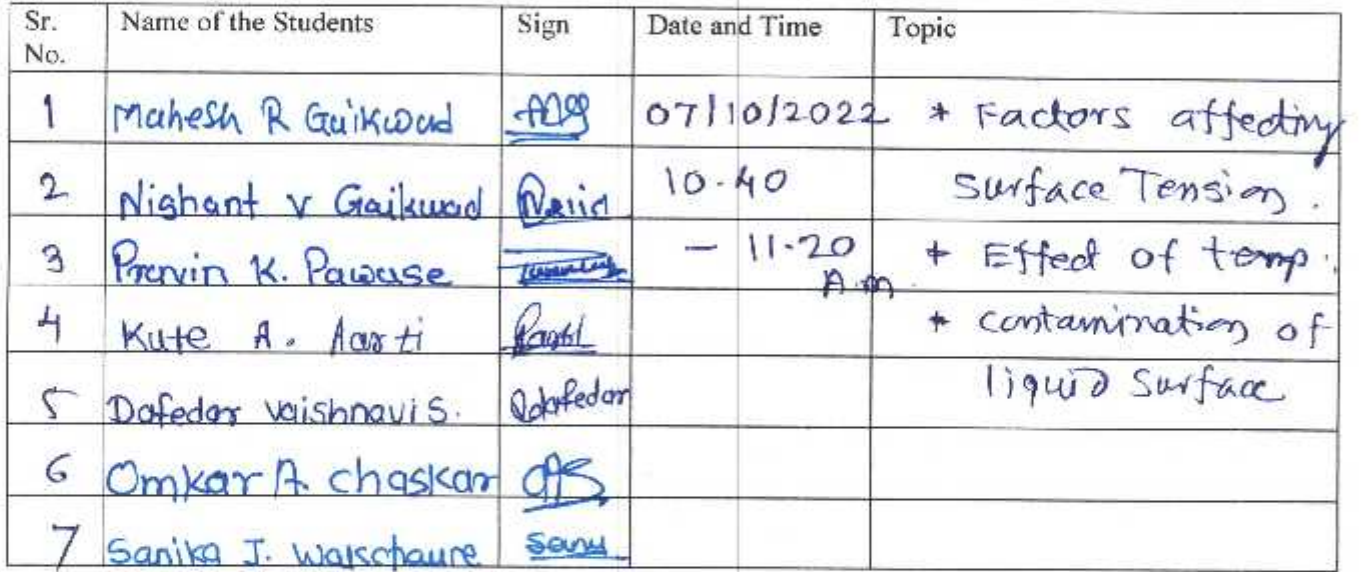 Sr. No. Name of the Students Sign Date and Time Topic
1 Mahesh R Gaikwad 07/10/2022 * Factors affecting
2 Nishant v Gaikwad 10.40 Surface Tension.
3 Pravin K. Pawase - 11.20 A.m * Effect of temp.
4 Kute A. Aarti * contamination of
5 Dafedar Vaishnavi S. Vdafedar liquid Surface
6 Omkar A. Chaskar
7 Sanika J.